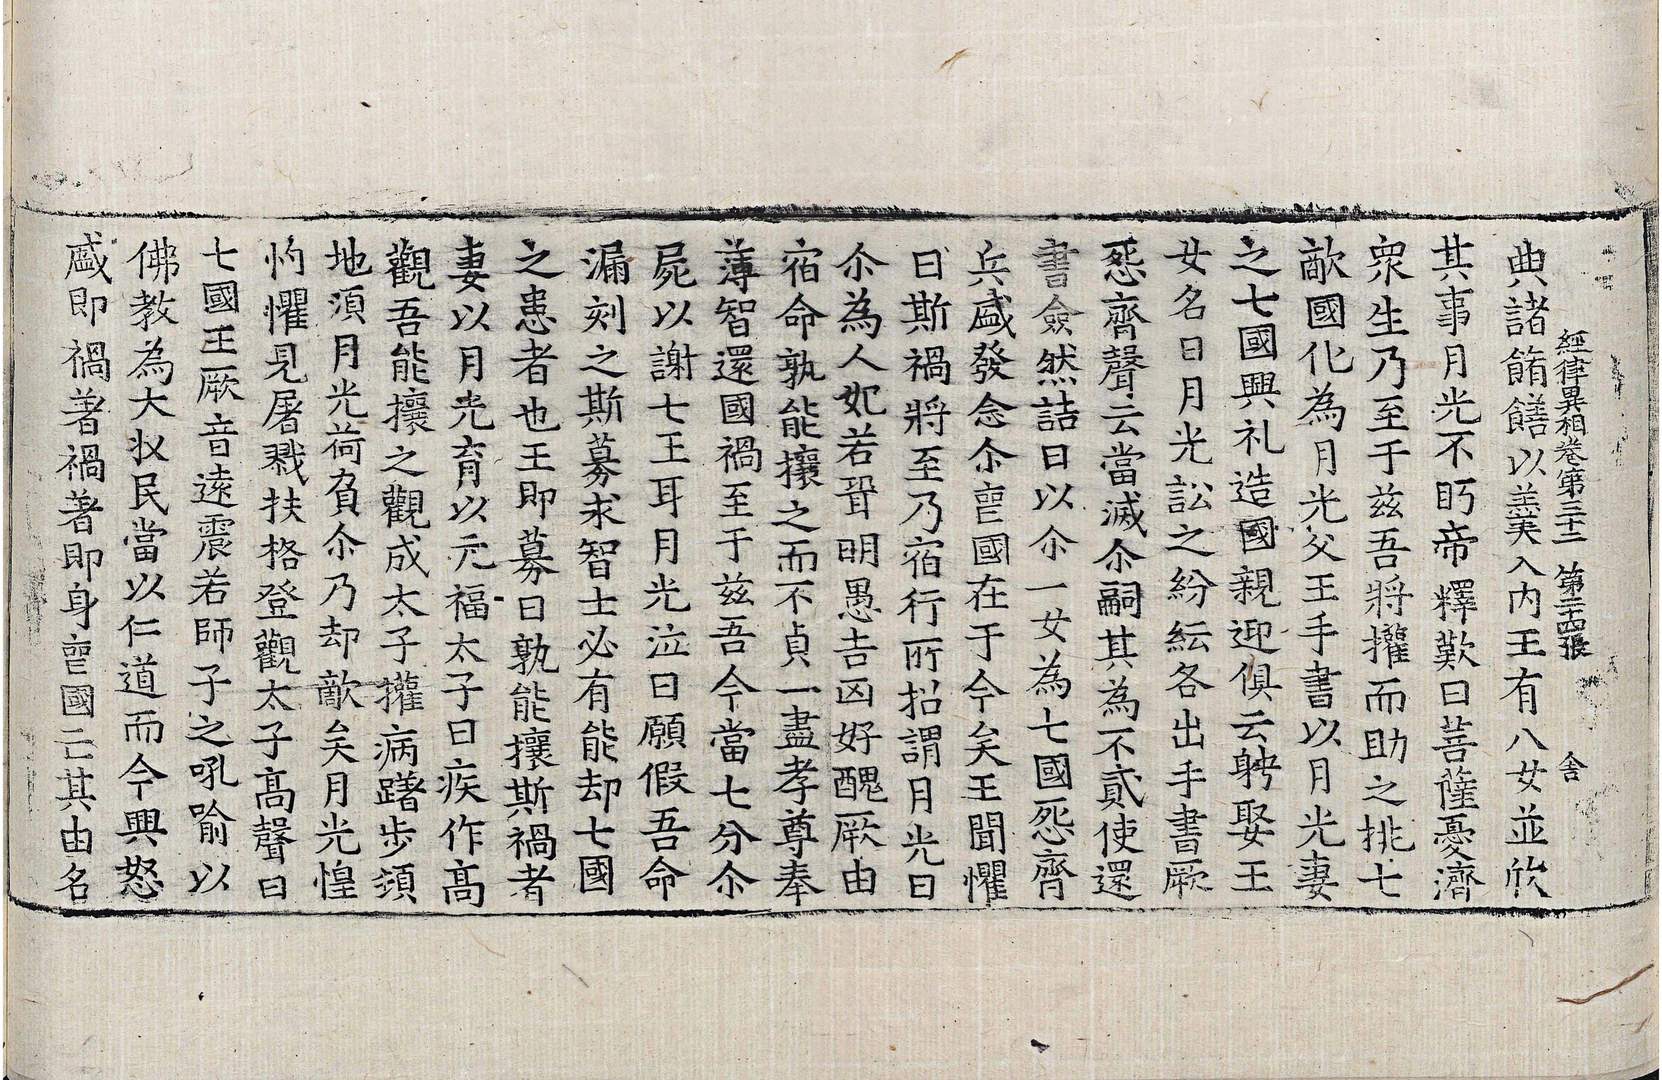 經律異相卷第三十二 第三十四張 舍
典諸餚饍以羙夾入內王有八女並欣
其事月光不眄帝釋歎曰菩薩憂濟
衆生乃至于茲吾將㩲而助之挑七
敵國化為月光父王手書以月光妻
之七國興礼造國親迎俱云娉娶王
女名曰月光訟之紛紜各出手書厥
怨齊聲云當滅尒嗣其為不貳使還
書僉然詰曰以尒一女為七國怨齊
兵盛發念尒亶國在于今矣王聞懼
曰斯禍將至乃宿行所招謂月光曰
尒為人妃若胥明愚吉凶好醜厥由
宿命孰能攘之而不貞一盡孝尊奉
薄智還國禍至于茲吾今當七分尒
屍以謝七王耳月光泣曰願假吾命
漏刻之斯募求智士必有能却七國
之患者也王即募曰孰能攘斯禍者
妻以月光育以元福太子曰疾作高
觀吾能攘之觀成太子㩲病躇步須
地須月光荷負尒乃却敵矣月光惶
灼懼見屠戮扶格登觀太子高聲曰
七國王厥音遠震若師子之吼喻以
佛教為大牧民當以仁道而今興怒
盛即禍著禍著即身亶國亡其由名